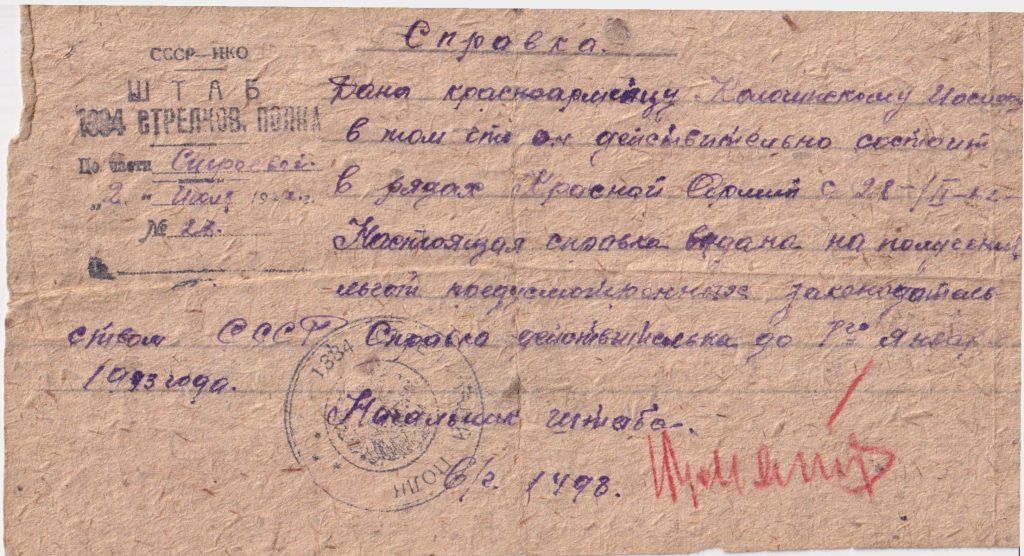 Справка.
СССР—НКО
ШТАБ
1384 СТРЕЛКОВ. ПОЛКА
По части Строевой
"2" Июля 194
№ 27.
Дана красноармейцу
в том что он действительно состоит
в рядах Красной Армии с 28-/II-42
Настоящая справка выдана на получение
льгот предусмотренных законодатель
ством СССР Справка действительна до 1го Январ
1943 года.
Начальник штаба.
1384 ПОЛК